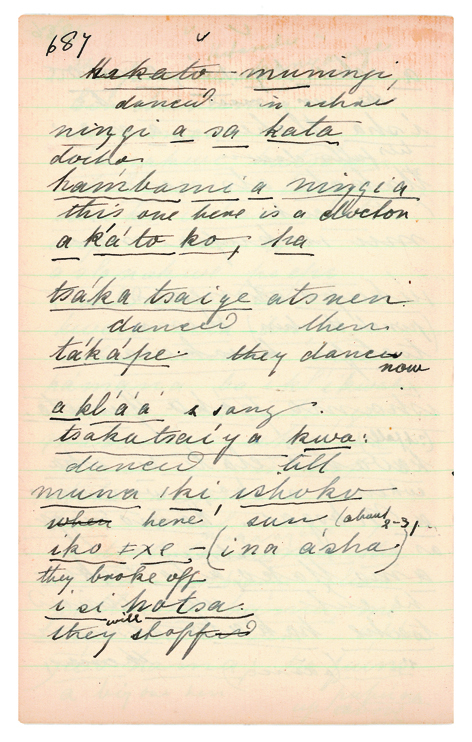 687
Hakatŏ muningi,
danced in
ningi a sa kata
doctor
hambami a ningia
this one here is a doctor
a káto ko, ha
tsáka tsaige atsnen
danced then
tákápe. they danced now
a kláá a song.
tsakatsaíya kwa:
danced all
muna iki ishoko
when here, sun (about 2-3)
iko ɛxe - (ina ásha)
they broke off
i si hotsa.
they will stopped